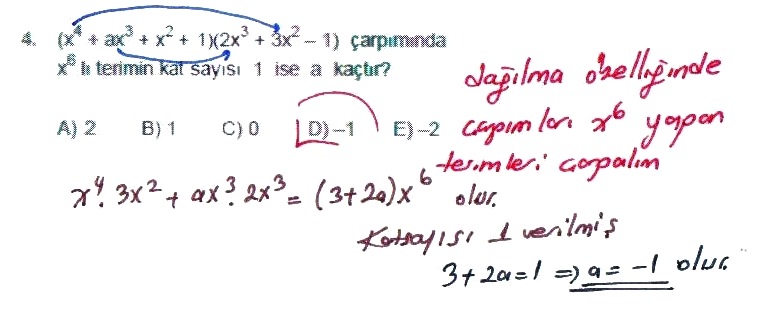 4. (x⁴ + ax³ + x² + 1)(2x³ + 3x² – 1) çarpımında
x⁶ lı terimin kat sayısı 1 ise a kaçtır?
A) 2 B) 1 C) 0 D) –1 E) –2
dağılma özelliğinde
çarpımları x⁶ yapan
terimleri çarpalım
x⁴. 3x² + ax³. 2x³ = (3+2a)x⁶ olur.
Katsayısı 1 verilmiş
3+2a=1 ⇒ a = -1 olur.